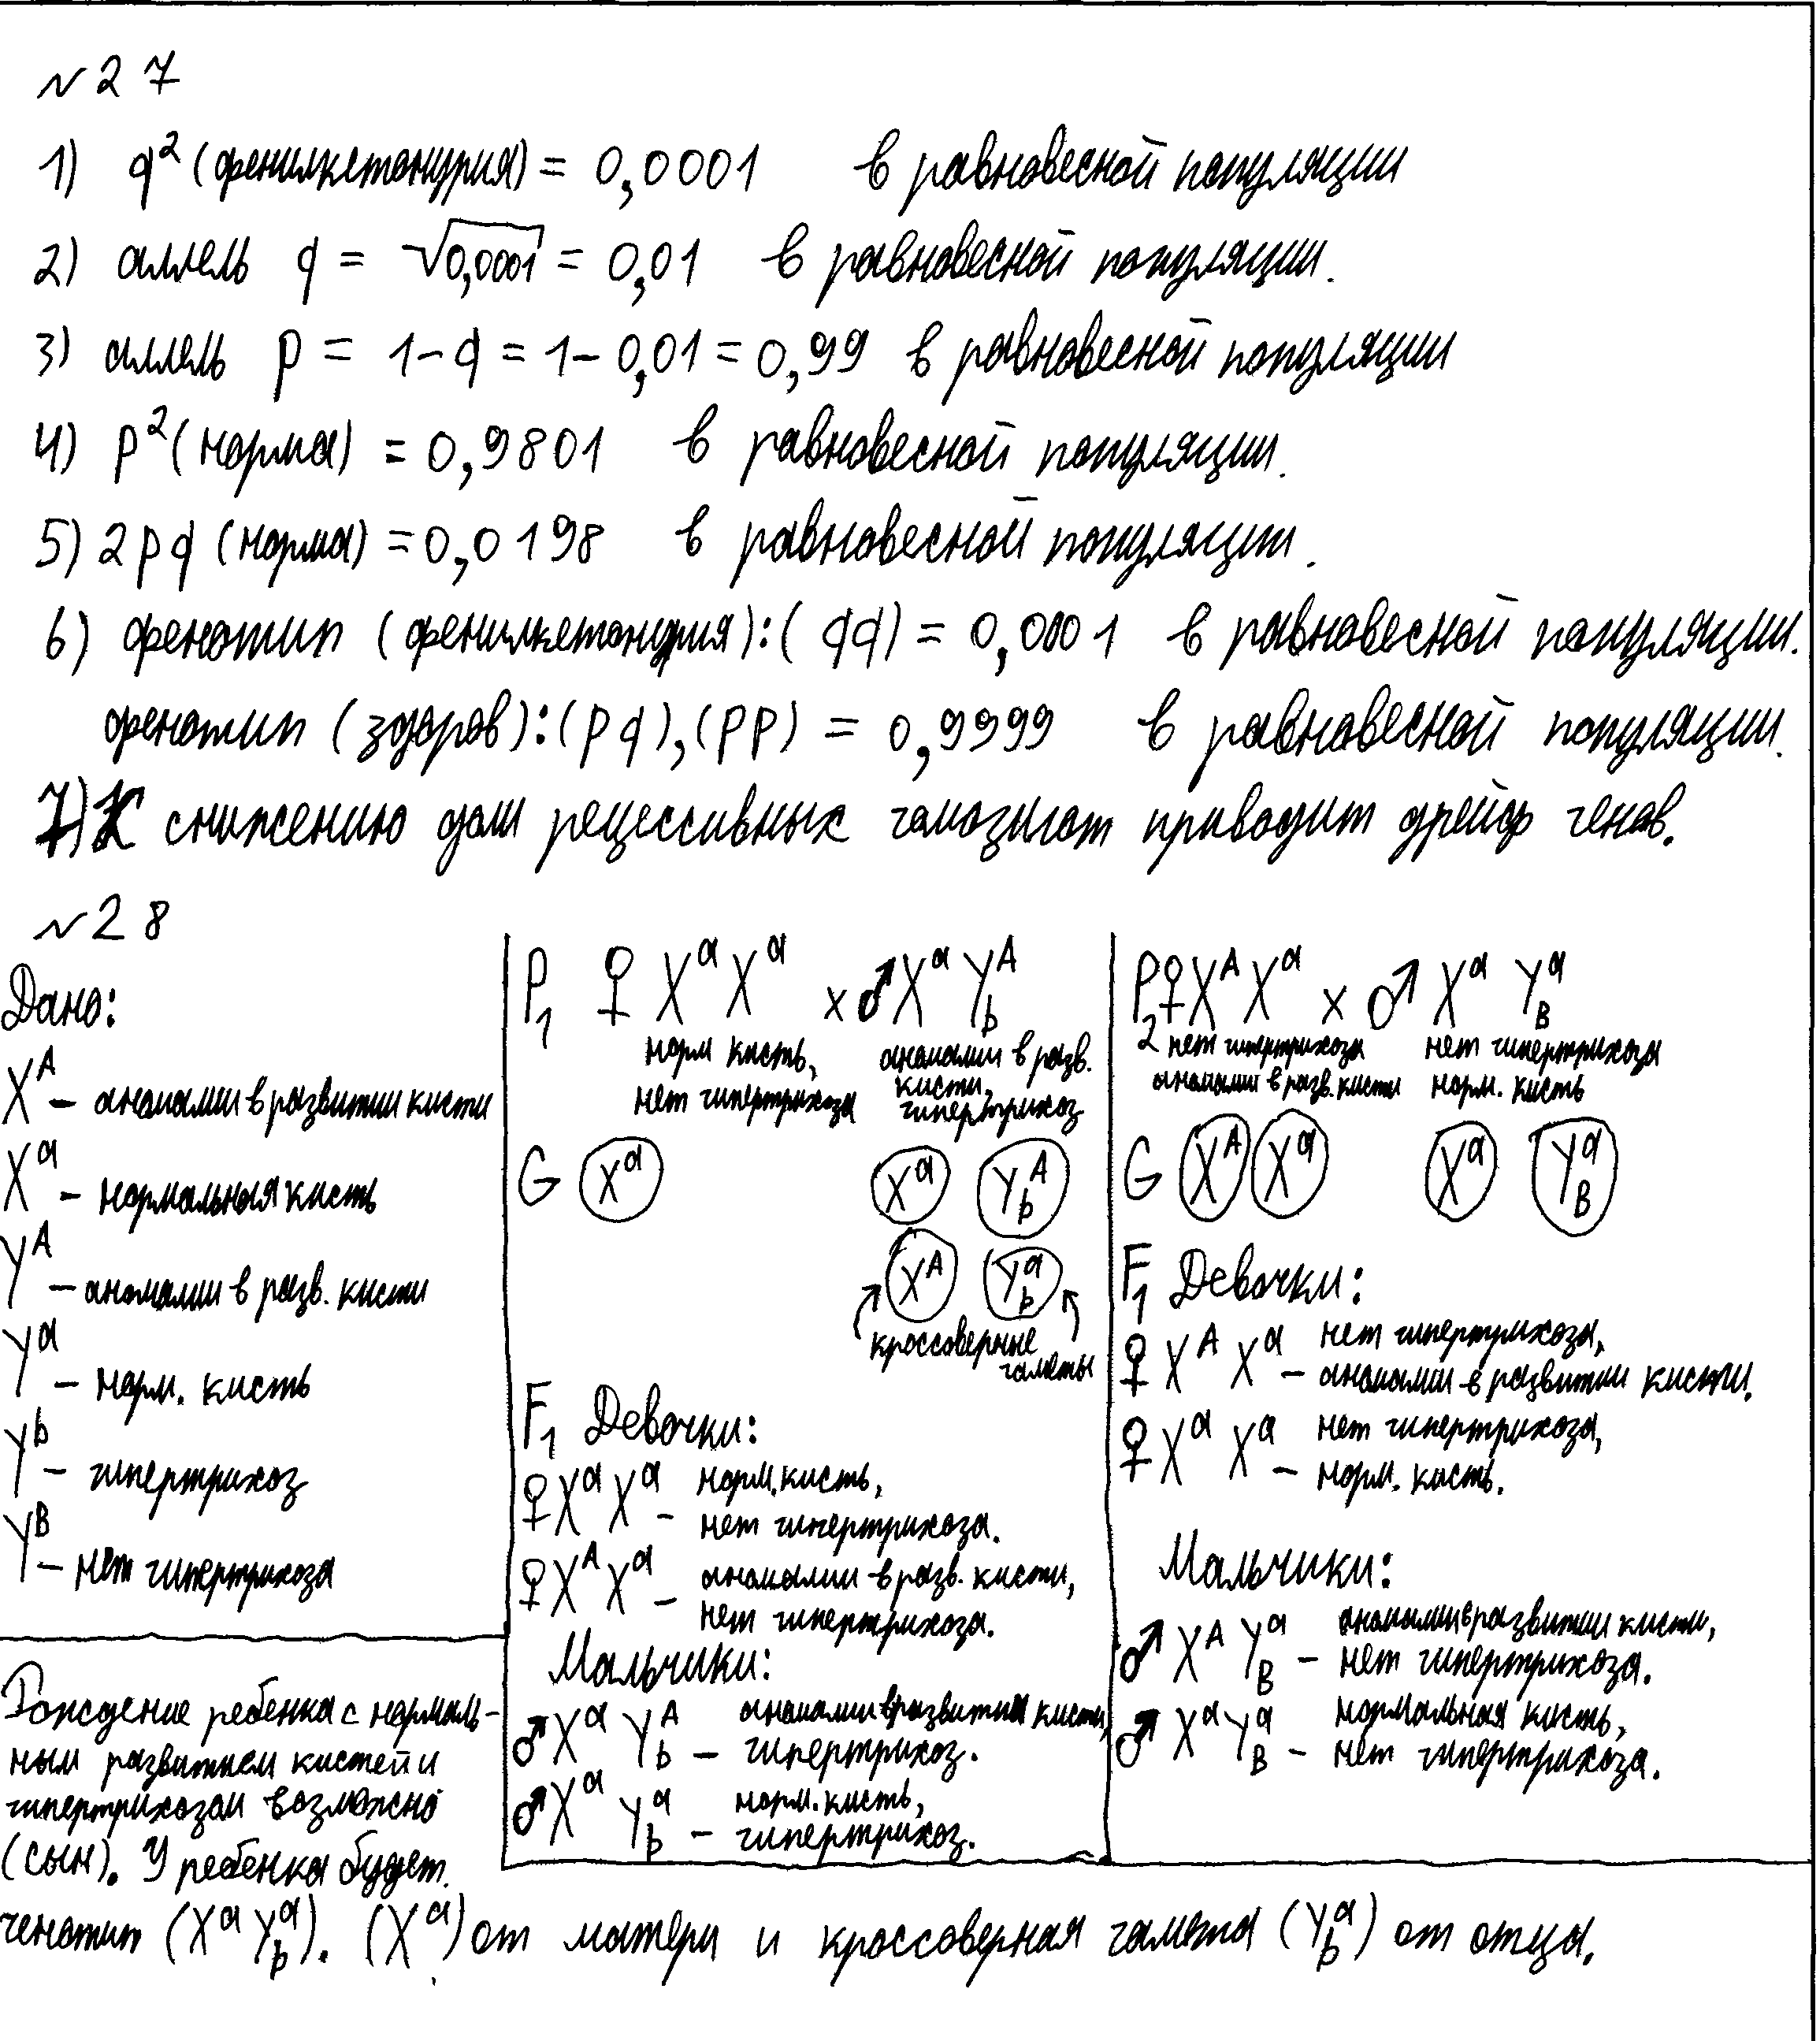 №27
1) q² (фенилкетонурия) = 0,0001 в равновесной популяции
2) аллель q = √0,0001 = 0,01 в равновесной популяции.
3) аллель p = 1-q = 1-0,01 = 0,99 в равновесной популяции
4) p² (норма) = 0,9801 в равновесной популяции.
5) 2pq (норма) = 0,0198 в равновесной популяции.
6) фенотип (фенилкетонурия): (qq) = 0,0001 в равновесной популяции.
фенотип (здоров): (pq), (pp) = 0,9999 в равновесной популяции.
7) К снижению доли рецессивных гомозигот приводит дрейф генов.
№28
Дано:
Xᴬ – аномалии в развитии кисти
Xᵃ – нормальная кисть
Yᴬ – аномалии в разв. кисти
Yᵃ – норм. кисть
Yᵇ – гипертрихоз
Yᴮ – нет гипертрихоза
Рождение ребенка с нормаль-
ным развитием кистей и
гипертрихозом возможно
(сын). У ребенка будет
P₁ ♀ Xᵃ Xᵃ x ♂ Xᵃ Yᴬb
норм кисть, аномалии в разв.
нет гипертрихоза кисти, гипертрихоз
G Xᵃ Xᵃ Yᴬb
Xᴬ Yᵃb
кроссоверные
гаметы
F₁ Девочки:
♀ Xᵃ Xᵃ – норм. кисть,
нет гипертрихоза.
♀ Xᴬ Xᵃ – аномалии в разв. кисти,
нет гипертрихоза.
Мальчики:
♂ Xᵃ Yᴬb – аномалии в развитии кисти,
гипертрихоз.
♂ Xᵃ Yᵃb – норм. кисть,
гипертрихоз.
P₂ ♀ Xᴬ Xᵃ x ♂ Xᵃ YᵃB
нет гипертрихоза нет гипертрихоза
аномалии в разв. кисти норм. кисть
G Xᴬ Xᵃ Xᵃ YᵃB
F₁ Девочки:
♀ Xᴬ Xᵃ – нет гипертрихоза,
аномалии в развитии кисти.
♀ Xᵃ Xᵃ – нет гипертрихоза,
норм. кисть.
Мальчики:
♂ Xᴬ YᵃB – аномалии в развитии кисти,
нет гипертрихоза.
♂ Xᵃ YᵃB – нормальная кисть,
нет гипертрихоза.
генотип (Xᵃ Yᵃb). (Xᵃ) от матери и кроссоверная гамета (Yᵃb) от отца.